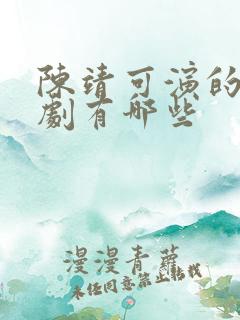 陳靖可演的
劇有哪些
漫漫青蘿
未經同意禁止轉載